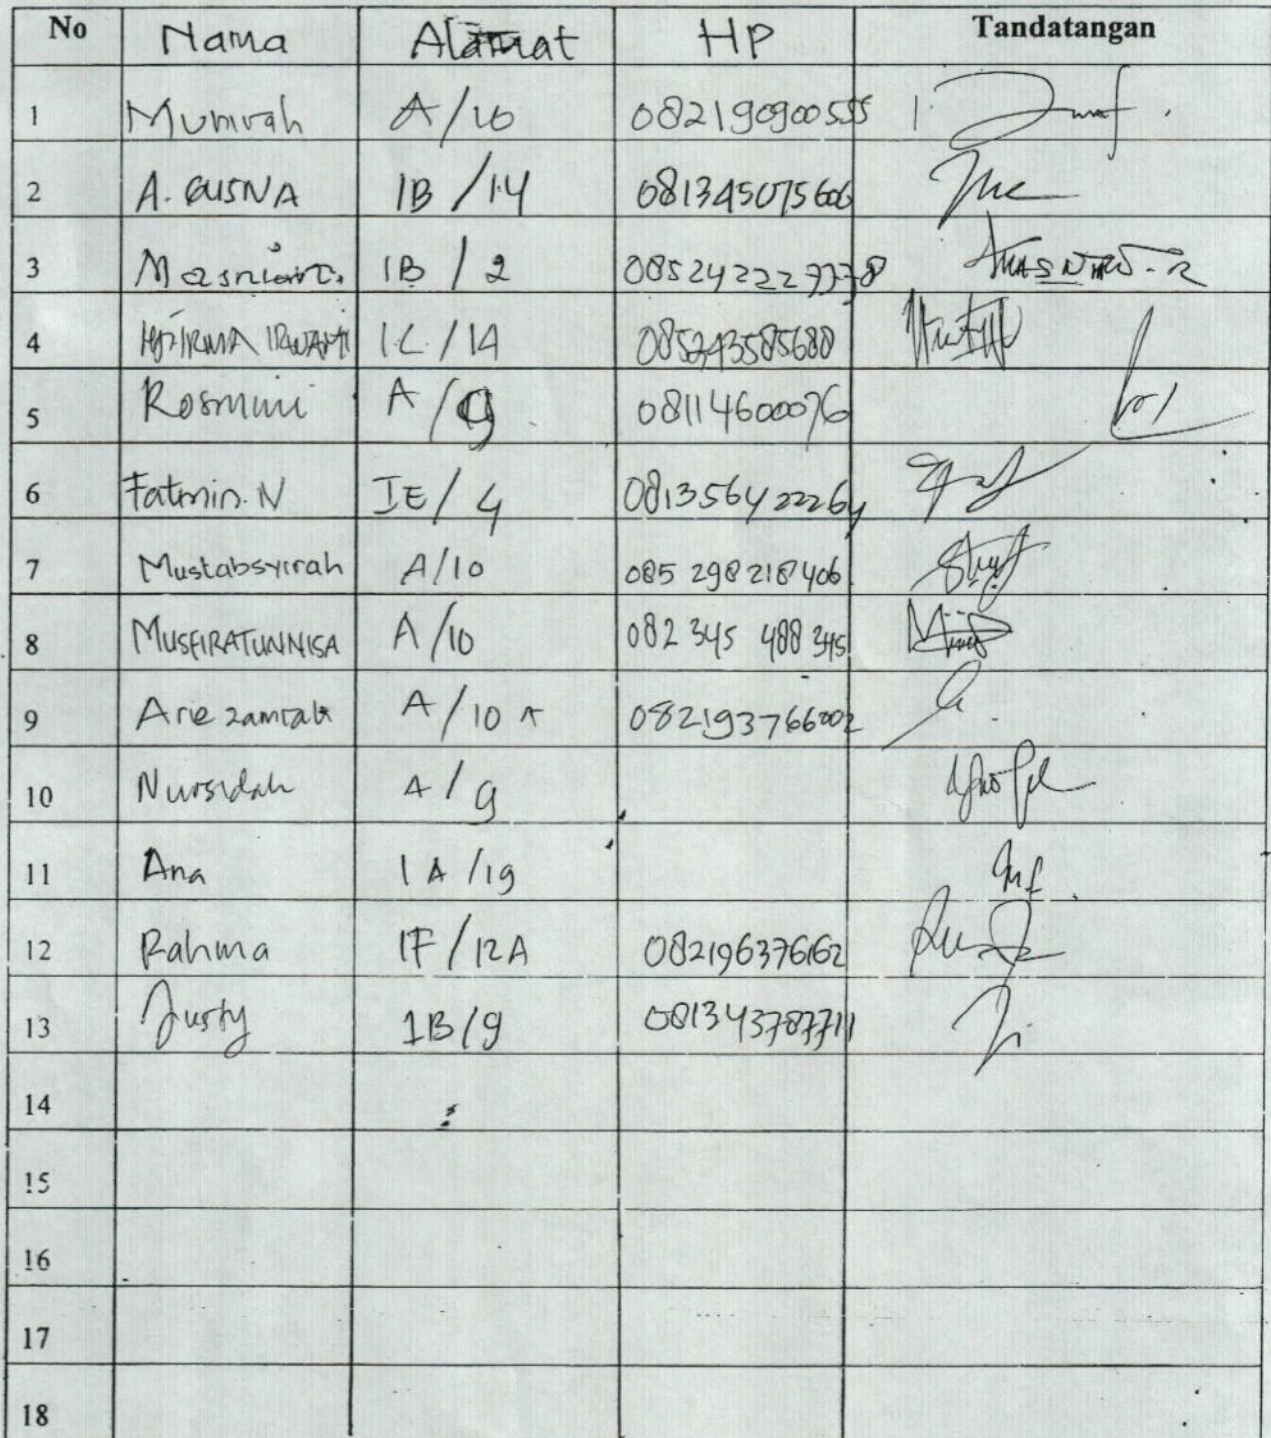 No Nama Alamat HP Tandatangan
1 Mumrah A/10 082190900555 1.
2 A. GUSNA IB /14 081345075606
3 Masniarti. IB / 2
4 Hj. IRMA IRWANTI 1C / 1A 085243585688
5 Rosmini A/9 08114600076
6 Fatmin. N IE/ 4 081356422264
7 Mustabsyirah A/10 085 298218406
8 MUSFIRATUNNISA A/10 082 345 488 345
9 Arie zamrah A/10 A 082193766002
10 Nursidah A/9
11 Ana 1A /19
12 Rahma 1F /12A 082196376162
13 Justy 1B/9 081343787711
14
15
16
17
18